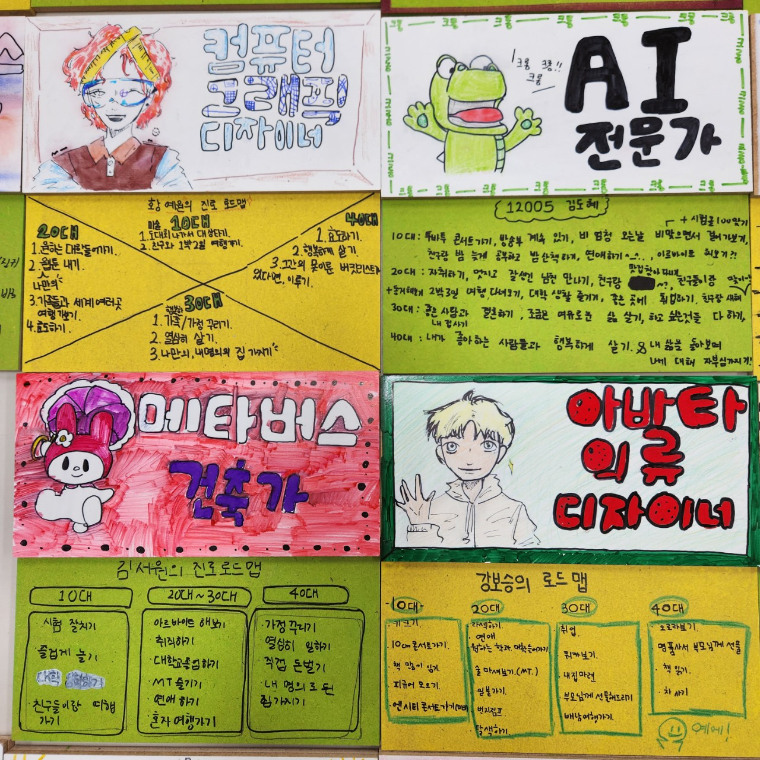 컴퓨터
그래픽
디자이너
크롱 크롱!!
크롱
AI
전문가
황예원의 진로 로드맵
20대
1. 원하는 대학 들어가기.
2. 웹툰 내기.
나만의
3. 가족들과 세계 여러곳
여행가보기.
4. 효도하기.
10대
1. 미술 대회 나가서 대상타기.
2. 친구와 1박2일 여행가기.
40대
1. 효도하기.
2. 행복하게 살기.
3. 그간의 못이룬 버킷리스트가
있다면, 이루기.
30대
1. 가족/가정 꾸리기.
2. 열심히 살기.
3. 나만의, 내명의의 집 가지기
12005 김도혜
+ 시험
10대 : 콘서트가기, 방송부 계속 있기, 비 엄청 오는날 비맞으면서 걸어가보기,
친구랑 밤 늦게 공부하고 밤 산책하기, 연애하기
20대 : 자취하기, 멋있고 잘생긴 남친 만나기, 친구랑
2박3일 여행 다녀오기, 대학 생활 즐기기, 좋은 곳에 취업하기, 친구랑
30대 : 좋은 사람과 결혼하기, 조금은 여유로운 삶 살기, 하고 싶은것들 다 하기,
내 집사기
40대 : 내가 좋아하는 사람들과 행복하게 살기. & 내 삶을 돌아보며
나에 대해 자부심가지기!
메타버스
건축가
아바타
의류
디자이너
김서원의 진로로드맵
10대
시험 잘치기
즐겁게 놀기
친구들이랑 여행
가기
20대~30대
아르바이트 해보기
취직하기
대학교졸업하기
MT 즐기기
연애 하기
혼자 여행가기
40대
가정 꾸리기
열심히 일하기
직접 돈벌기
내 명의로 된
집 가지기
강보승의 로드맵
10대
키크기
10cm 콘서트가기
책 많이 읽기
피규어 모으기
엔시티 콘서트가기
20대
연애
원하는 학과, 대학들어가기
술 마셔보기 (MT)
일본가기
번지점프
탈색하기
30대
취업
내집마련
부모님께 선물해드리기
배낭여행가기
40대
명품사서 부모님께 선물
책 읽기
차 사기
예에!